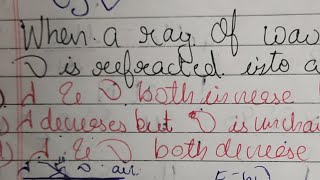 When a ray Of wav
ν is refracted into a
λ & ν both increase
λ decreases but ν is uncha
λ & ν both decrease
air
E=hν